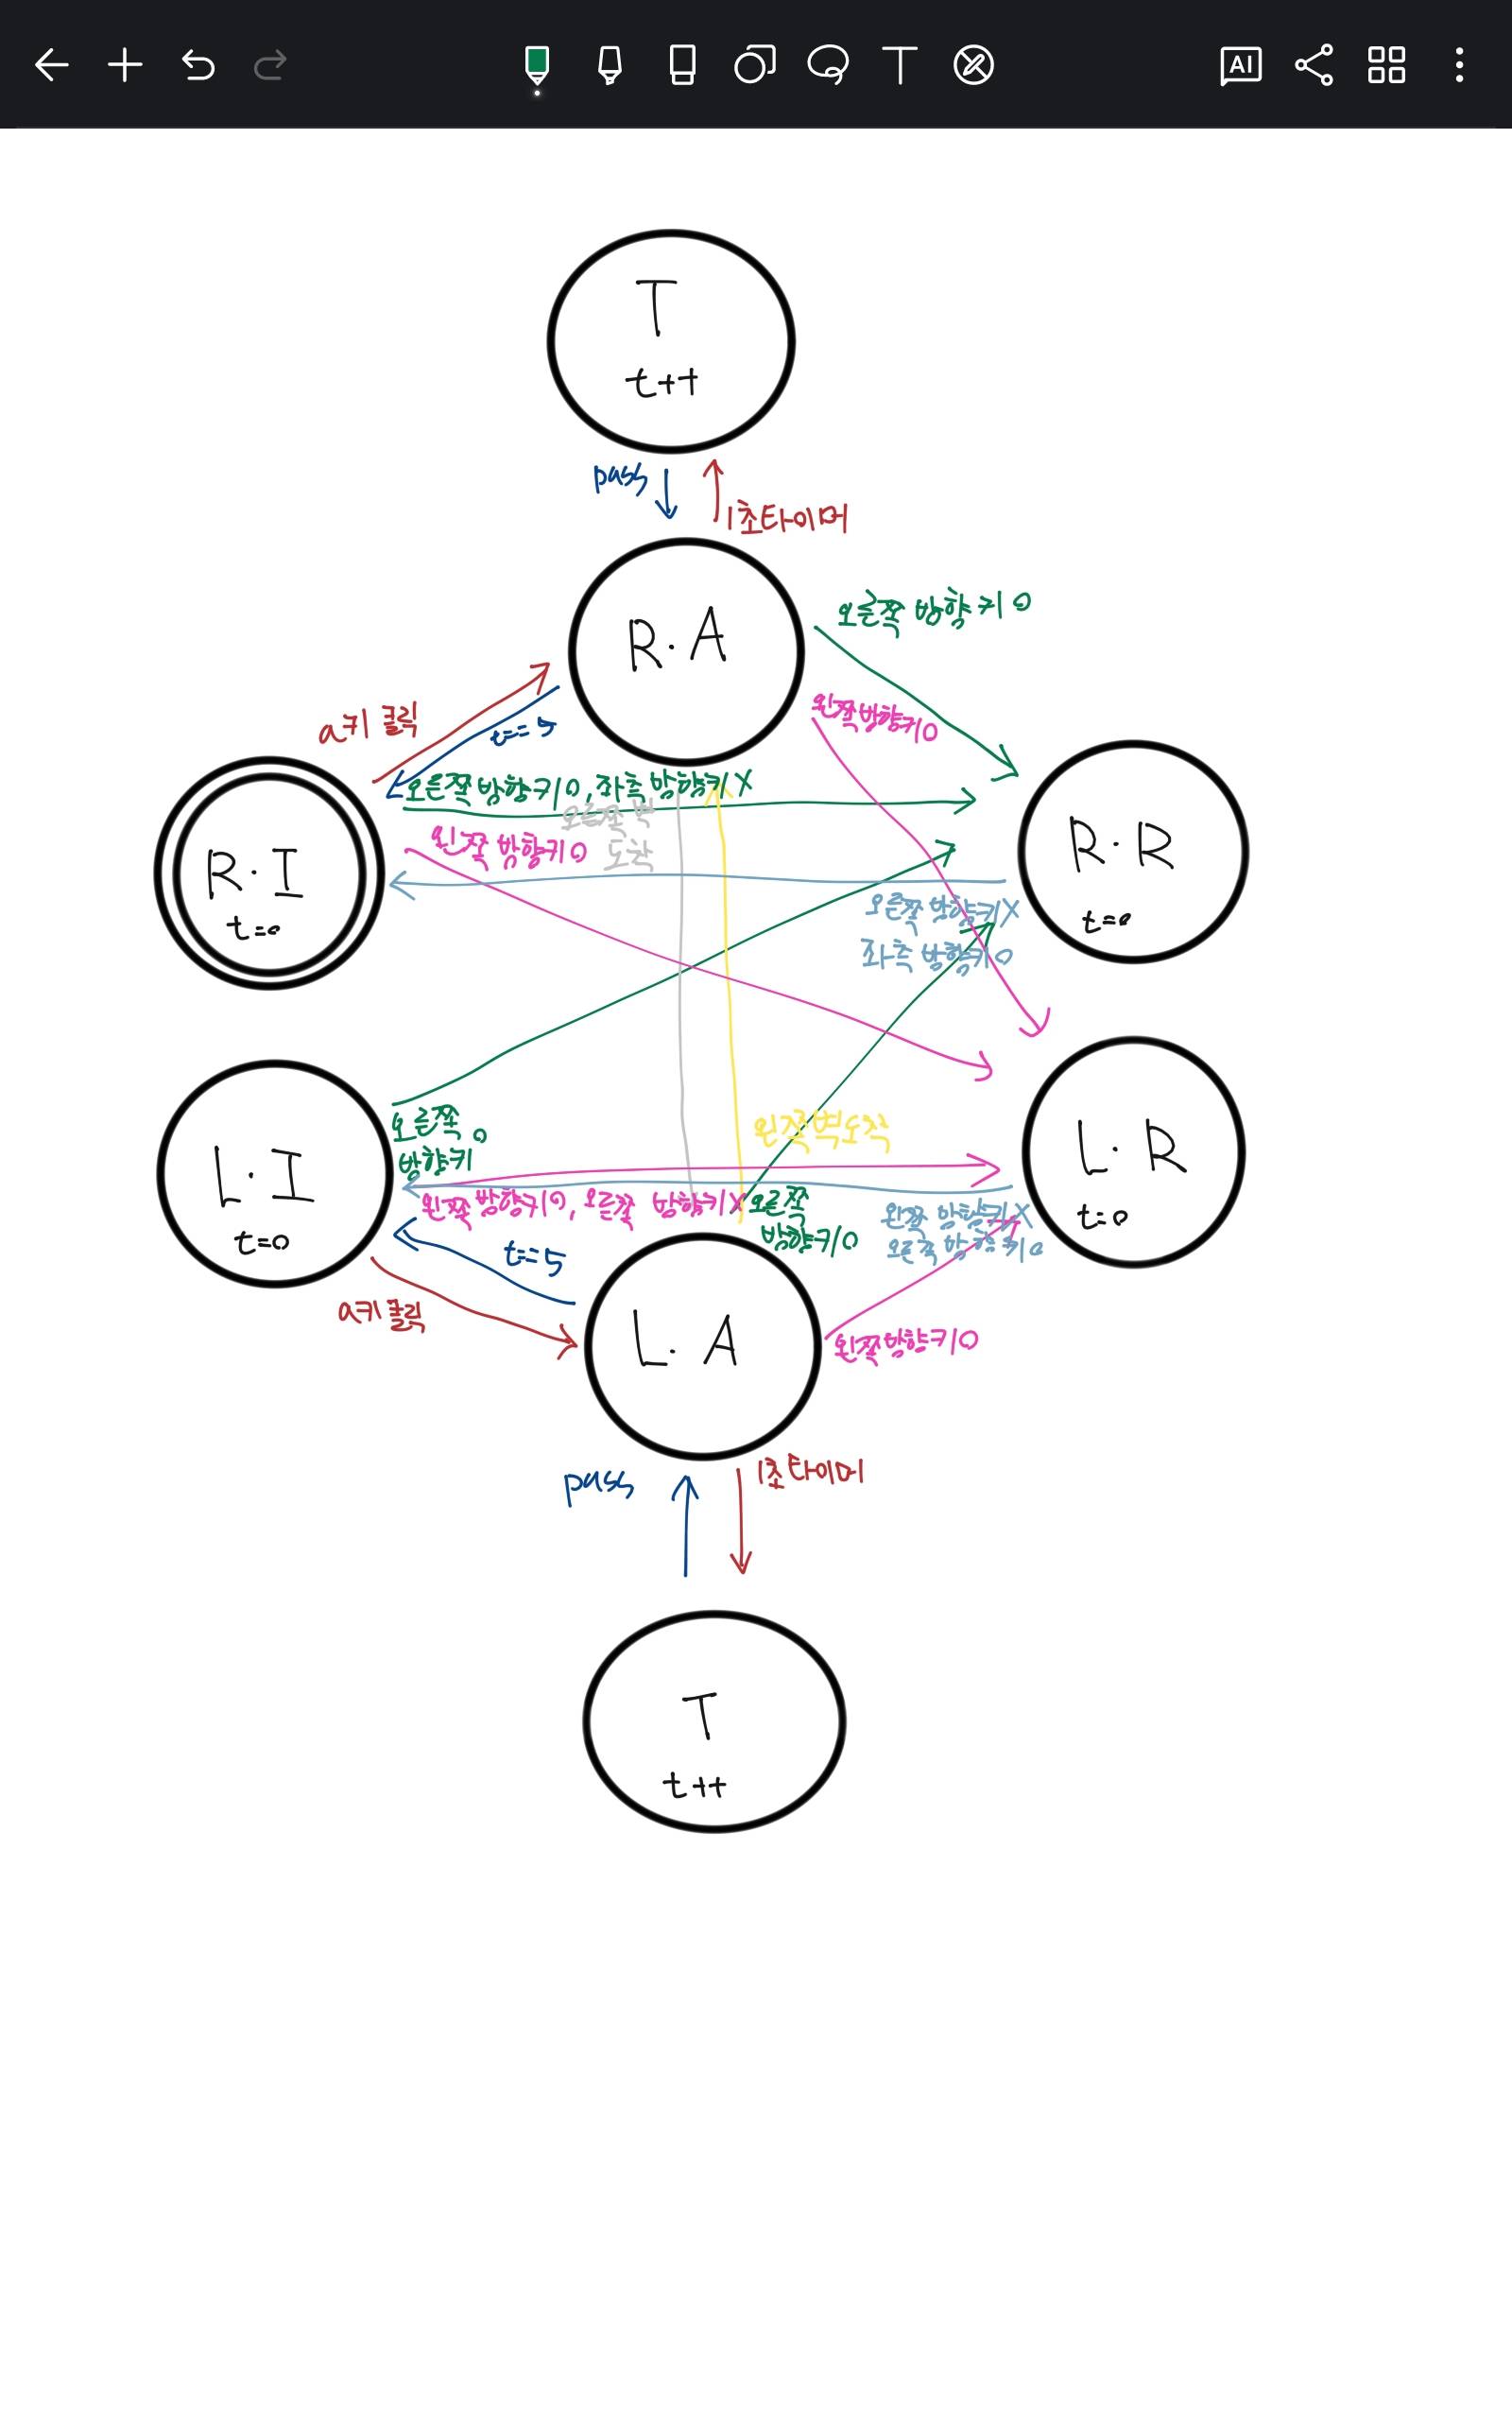 AI
T
T
t++
pass
1초타이머
R·A
오른쪽 방향키 O
왼쪽방향키O
a키 클릭
t==5
오른쪽 방향키O, 좌측 방향키X
오른쪽 벽
도착
왼쪽 방향키O
R·I
t=0
R·R
t=0
오른쪽 방향키X
좌측 방향키O
오른쪽 O
방향키
왼쪽벽도착
L·I
t=0
L·R
t=0
왼쪽 방향키O, 오른쪽 방향키X
오른쪽
방향키O
왼쪽 방향키X
오른쪽 방향키O
t==5
a키 클릭
L·A
왼쪽방향키O
pass
1초타이머
T
t++